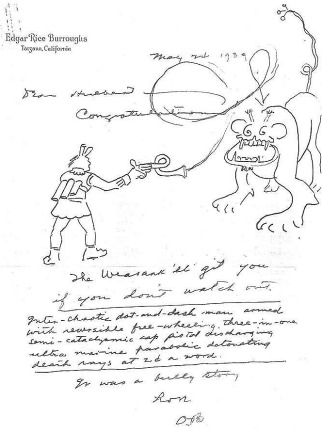 Edgar Rice Burroughs
Tarzana, California
May 2d 1939
Dear Hubbard
Congratulations
The Weasant 'll git you
if you don't watch out.
Inter-chaotic dot-and-dash man armed
with reversible free-wheeling, three-in-one
semi-cataclysmic cap pistol discharging
ultra marine parabolic detonating
death rays at 2¢ a word.
It was a bully story
Ron